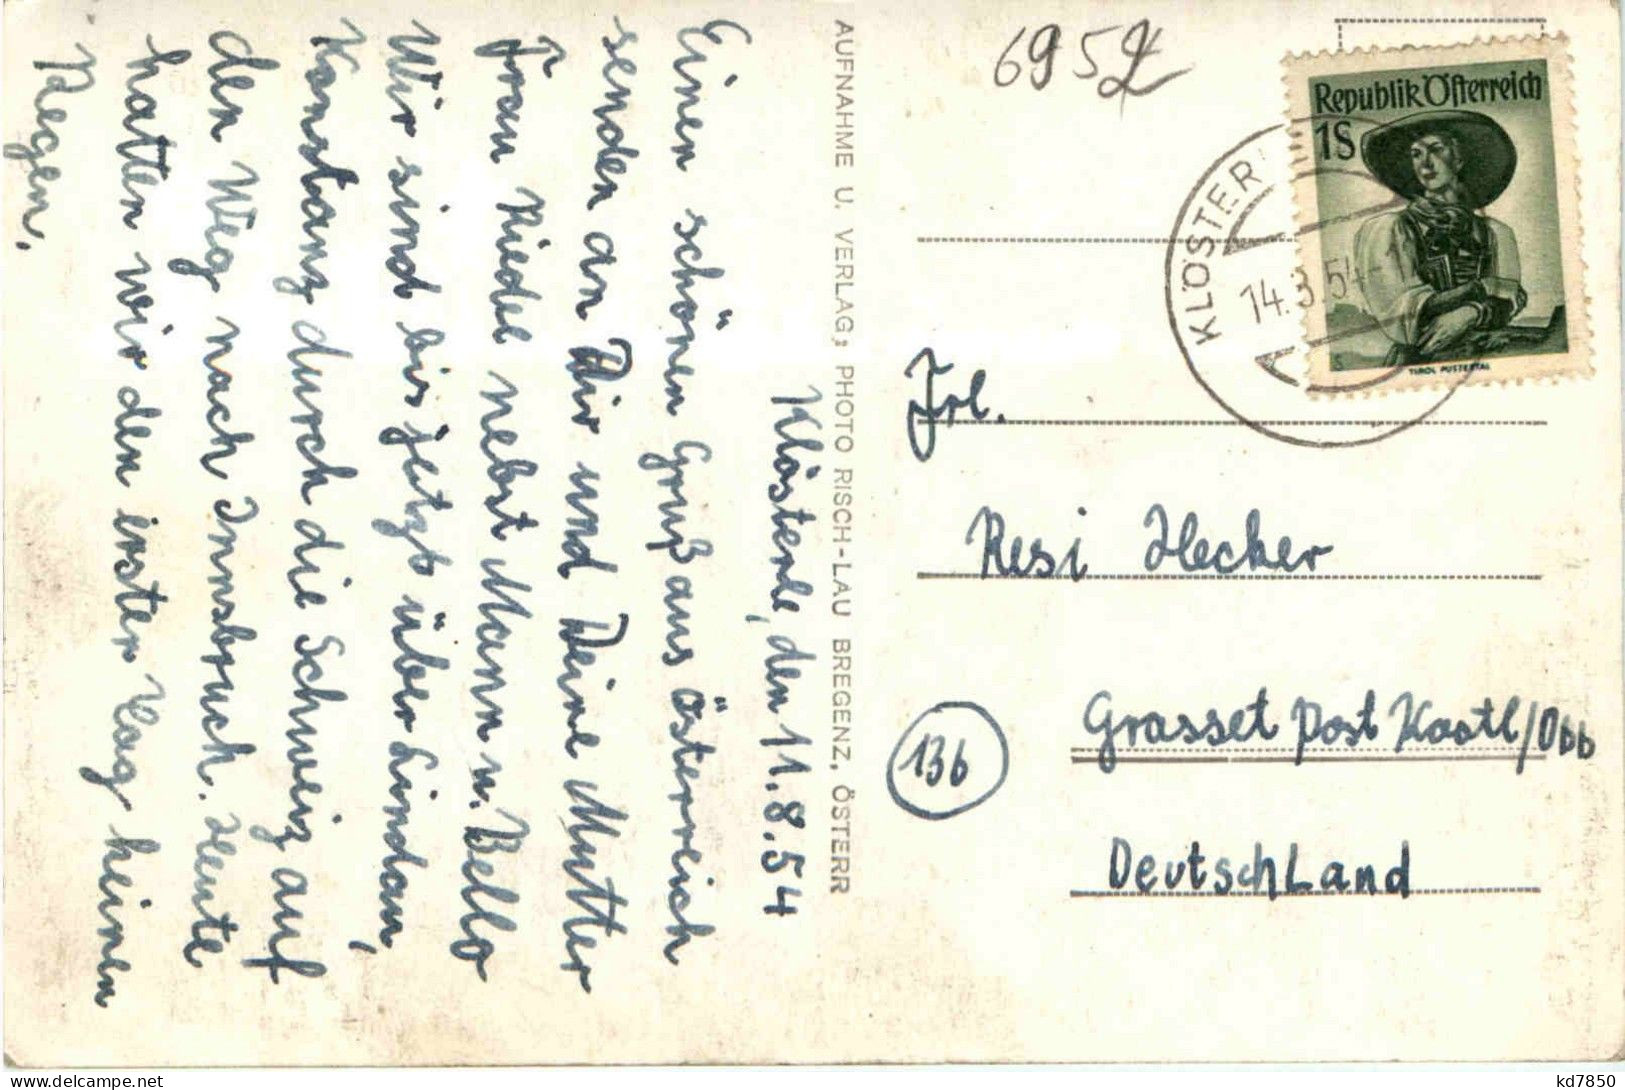 Klösterle, den 11.8.54
Einen schönen Gruß aus Österreich
senden an Dir und Deine Mutter
Frau Riedel nebst Mann u. Bello
Wir sind bis jetzt über Lindau,
Konstanz durch die Schweiz auf
den Weg nach Innsbruck. Heute
hatten wir den erster Tag keinen
Regen.
AUFNAHME U. VERLAG; PHOTO RISCH-LAU BREGENZ, ÖSTERR
6952
Republik Österreich
1S
TIROL PUSTERTAL
KLÖSTER
14.8.54-1
Frl.
Resi Hecker
Grasset Post Kastl/Obb
13b
Deutschland
kd7850